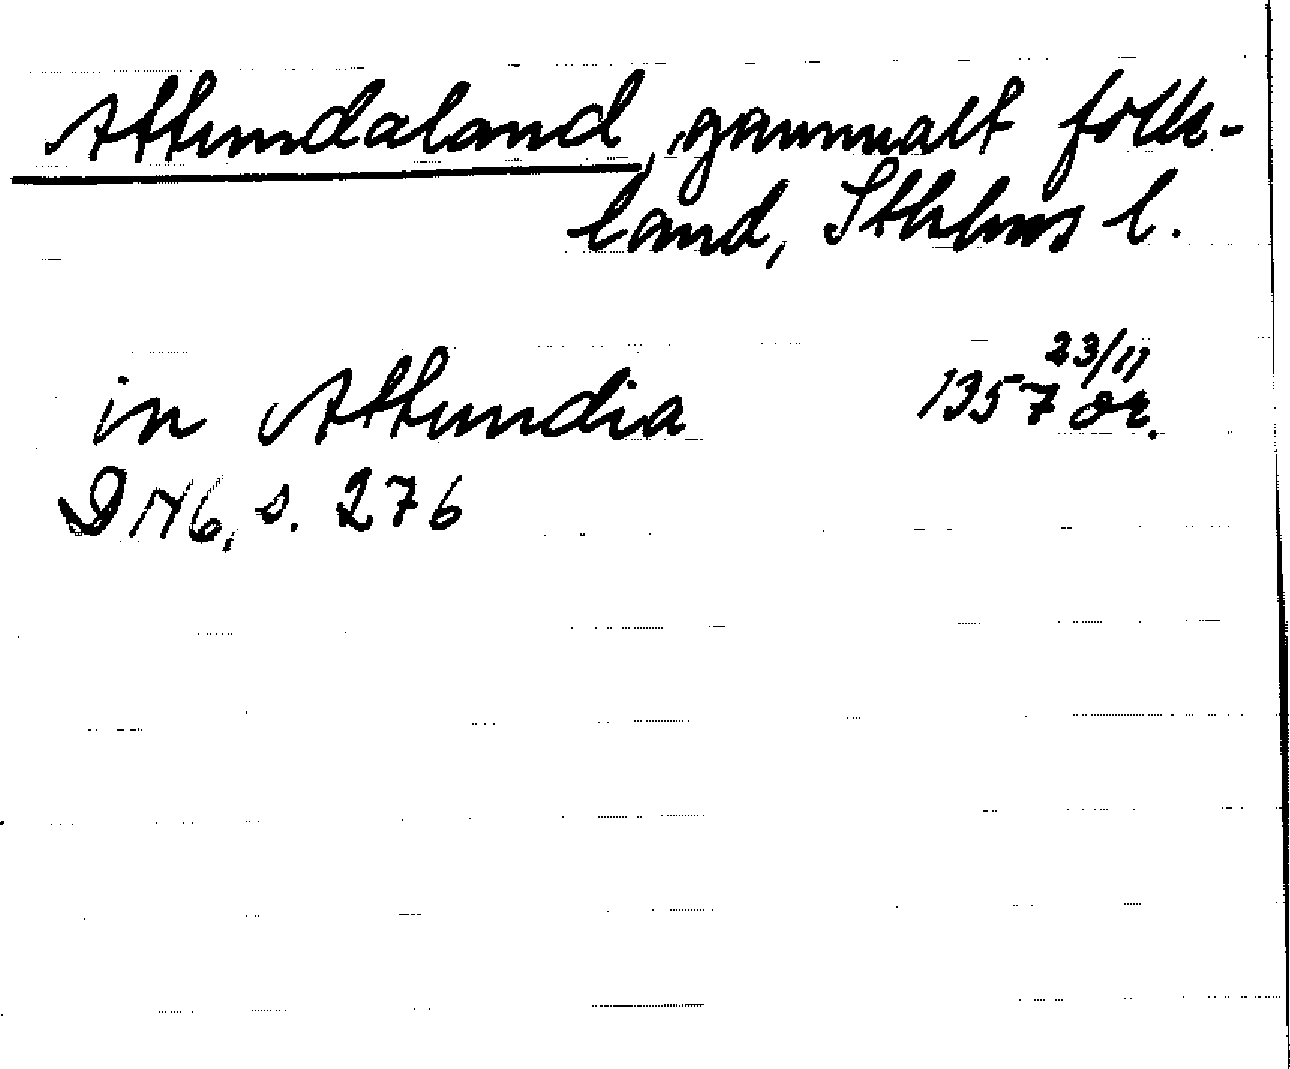 Attundaland, gammalt folk-
land, Sthlms l.
in Attundia 1357 23/11 or.
DN6, s. 276